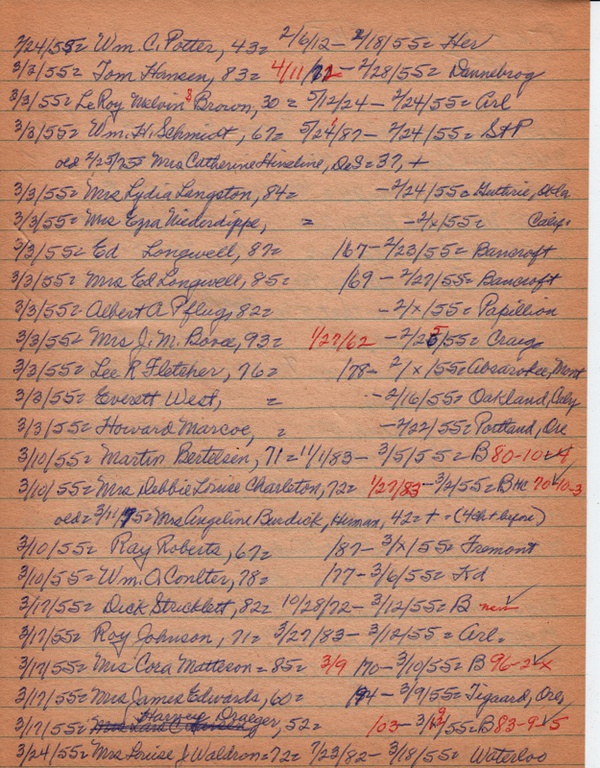 2/24/55= Wm. C. Potter, 43= 2/6/12 - 2/18/55= Her
3/3/55= Tom Hansen, 83= 4/11/72 - 2/28/55= Dannebrog
3/3/55= LeRoy Melvin Brown, 30= 5/12/24 - 2/24/55= Arl
3/3/55= Wm. H. Schmidt, 67= 5/24/87 - 2/24/55= StP
old 2/25/25= Mrs Catherine Hineline, DeS= 37, +
3/3/55= Mrs Lydia Langston, 84= - 2/24/55= Guthrie, Okla
3/3/55= Mrs Ezra Niederdippe, = - 2/x/55= Calif.
3/3/55= Ed Longwell, 87= /67 - 2/23/55= Bancroft
3/3/55= Mrs Ed Longwell, 85= /69 - 2/27/55= Bancroft
3/3/55= Albert A Pflug, 82= - 2/x/55= Papillion
3/3/55= Mrs J. M. Bovee, 93= 1/27/62 - 2/25/55= Craig
3/3/55= Lee R Fletcher, 76= /78 - 2/x/55= Absarokee, Mont
3/3/55= Everett West, = - 2/16/55= Oakland, Calif
3/3/55= Howard Marcoe, = - 2/22/55= Portland, Ore
3/10/55= Martin Bertelsen, 71= 11/1/83 - 3/5/55= B 80-10-4
3/10/55= Mrs Debbie Louise Charleton, 72= 1/27/83 - 3/2/55= B 70-10-3
old= Mrs Angeline Burdick, Herman, 42= + = (4ch + bye)
3/10/55= Ray Roberts, 67= /87 - 3/x/55= Fremont
3/10/55= Wm. O. Coulter, 78= /77 - 3/6/55= Kd
3/17/55= Dick Stricklett, 82= 10/28/72 - 3/12/55= B new
3/17/55= Roy Johnson, 71= 3/27/83 - 3/12/55= Arl.
3/17/55= Mrs Cora Matteson= 85= 3/9/70 - 3/10/55= B 96-2-x
3/17/55= Mrs James Edwards, 60= /94 - 3/9/55= Tigaard, Ore,
3/17/55= Harney Draeger, 52= /03 - 3/ /55= B 83-9-5
3/24/55= Mrs Louise J. Waldron= 72= 7/23/82 - 3/18/55= Waterloo